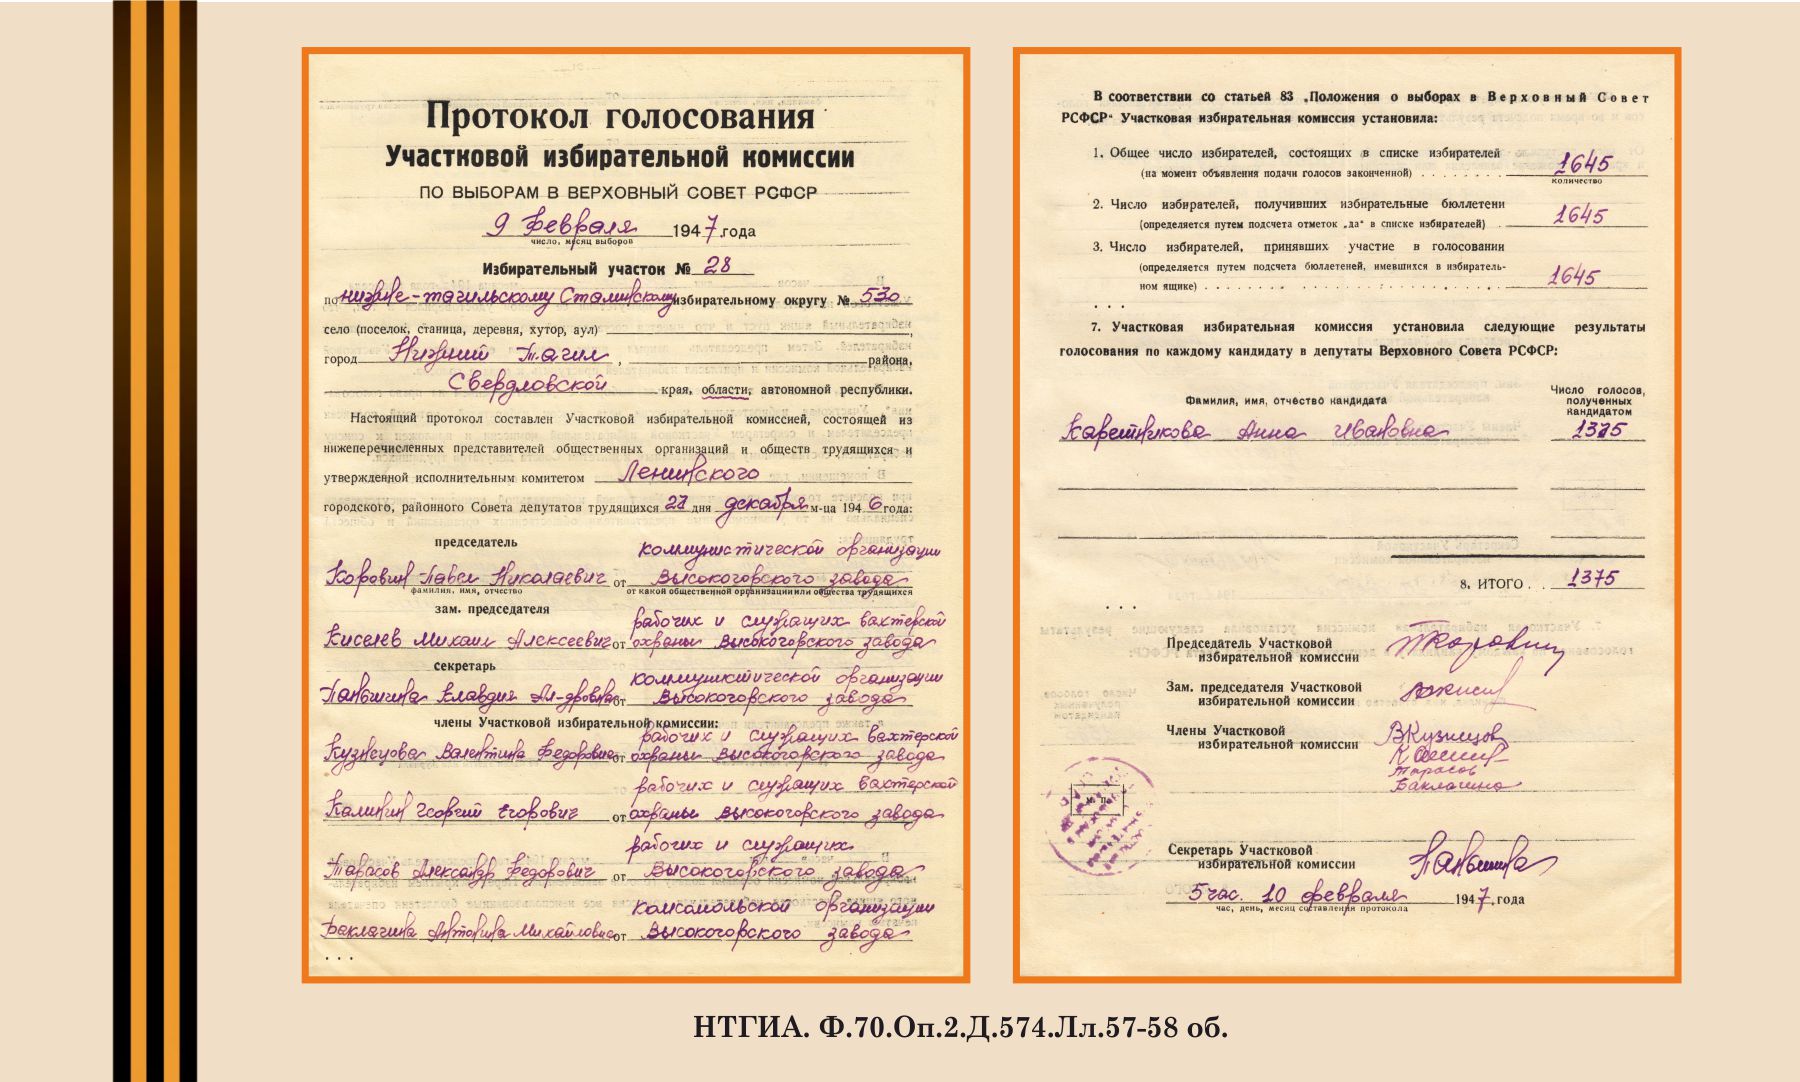 Протокол голосования
Участковой избирательной комиссии
ПО ВЫБОРАМ В ВЕРХОВНЫЙ СОВЕТ РСФСР
9 Февраля 1947 года
число, месяц выборов
Избирательный участок № 28
по Нижне-тагильскому Сталинскому избирательному округу № 530
село (поселок, станица, деревня, хутор, аул)
город Нижний Тагил, района,
Свердловской края, области, автономной республики.
Настоящий протокол составлен Участковой избирательной комиссией, состоящей из
нижеперечисленных представителей общественных организаций и обществ трудящихся и
утвержденной исполнительным комитетом Ленинского
городского, районного Совета депутатов трудящихся дня декабря м-ца 1946 года:
председатель
коммунистической организации
Коровин Павел Николаевич от Высокогорского завода
фамилия, имя, отчество от какой общественной организации или общества трудящихся
зам. председателя
рабочих и служащих вахтерской
Киселев Михаил Алексеевич от охраны Высокогорского завода
секретарь
коммунистической организации
Паньшина Клавдия Ал-дровна от Высокогорского завода
члены Участковой избирательной комиссии:
рабочих и служащих вахтерской
Кузнецова Валентина Федоровна от охраны Высокогорского завода
рабочих и служащих вахтерской
Калинин Георгий Егорович от охраны Высокогорского завода
рабочих и служащих
Тарасов Александр Федорович от Высокогорского завода
комсомольской организации
Баклагина Антонина Михайловна от Высокогорского завода
. . .
В соответствии со статьей 83 „Положения о выборах в Верховный Совет
РСФСР“ Участковая избирательная комиссия установила:
1. Общее число избирателей, состоящих в списке избирателей
(на момент объявления подачи голосов законченной) . . . . . . . . 1645
количество
2. Число избирателей, получивших избирательные бюллетени
(определяется путем подсчета отметок „да“ в списке избирателей) . 1645
3. Число избирателей, принявших участие в голосовании
(определяется путем подсчета бюллетеней, имевшихся в избиратель-
ном ящике) . . . . . . . . . . . . . . . . . . . . 1645
. . .
7. Участковая избирательная комиссия установила следующие результаты
голосования по каждому кандидату в депутаты Верховного Совета РСФСР:
Фамилия, имя, отчество кандидата
Число голосов,
полученных
кандидатом
Каретникова Анна Ивановна 1375
8. ИТОГО . . 1375
. . .
Председатель Участковой
избирательной комиссии ПКоровин
Зам. председателя Участковой
избирательной комиссии
Члены Участковой
избирательной комиссии ВКузнецов
Тарасов
Баклагина
Секретарь Участковой
избирательной комиссии Паньшина
5 час. 10 февраля 1947 года
час, день, месяц составления протокола
НТГИА. Ф.70.Оп.2.Д.574.Лл.57-58 об.